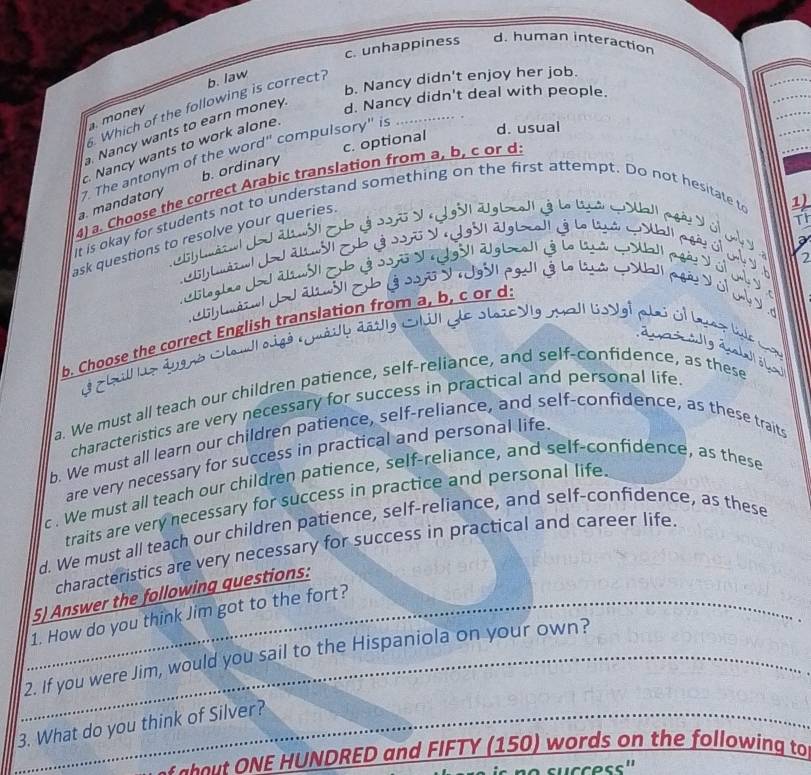 c. unhappiness d. human interaction
a. money b. law
6. Which of the following is correct?
a. Nancy wants to earn money. b. Nancy didn't enjoy her job.
c. Nancy wants to work alone. d. Nancy didn't deal with people.
7. The antonym of the word" compulsory" is ............. .
a. mandatory b. ordinary c. optional d. usual
4) a. Choose the correct Arabic translation from a, b, c or d:
It is okay for students not to understand something on the first attempt. Do not hesitate to
ask questions to resolve your queries.
a. لا بأس أن لا يفهم الطلاب شيئا ما في المحاولة الأولى، لا تتردد في طرح الأسئلة لحل استفساراتك.
b. لا بأس أن لا يفهم الطلاب شيئا ما في المحاولة الأولى، لا تتردد في طرح الأسئلة لحل استفساراتك.
c. لا بأس أن لا يفهم الطلاب شيئا ما في المحاولة الأولى، لا تتردد في طرح الأسئلة لحل
d. لا بأس أن لا يفهم الطلاب شيئا ما في اليوم الأول، لا تتردد في طرح الأسئلة لحل استفساراتك.
b. Choose the correct English translation from a, b, c or d:
يجب علينا جميعا أن نعلم أولادنا الصبر والاعتماد على الذات والثقة بالنفس، فهذه السمات ضرورية جدا للنجاح في
الحياة العملية والشخصية.
a. We must all teach our children patience, self-reliance, and self-confidence, as these
characteristics are very necessary for success in practical and personal life.
b. We must all learn our children patience, self-reliance, and self-confidence, as these traits
are very necessary for success in practical and personal life.
c . We must all teach our children patience, self-reliance, and self-confidence, as these
traits are very necessary for success in practice and personal life.
d. We must all teach our children patience, self-reliance, and self-confidence, as these
characteristics are very necessary for success in practical and career life.
5) Answer the following questions:
1. How do you think Jim got to the fort?
2. If you were Jim, would you sail to the Hispaniola on your own?
3. What do you think of Silver?
about ONE HUNDRED and FIFTY (150) words on the following to
is no success"
1)
2